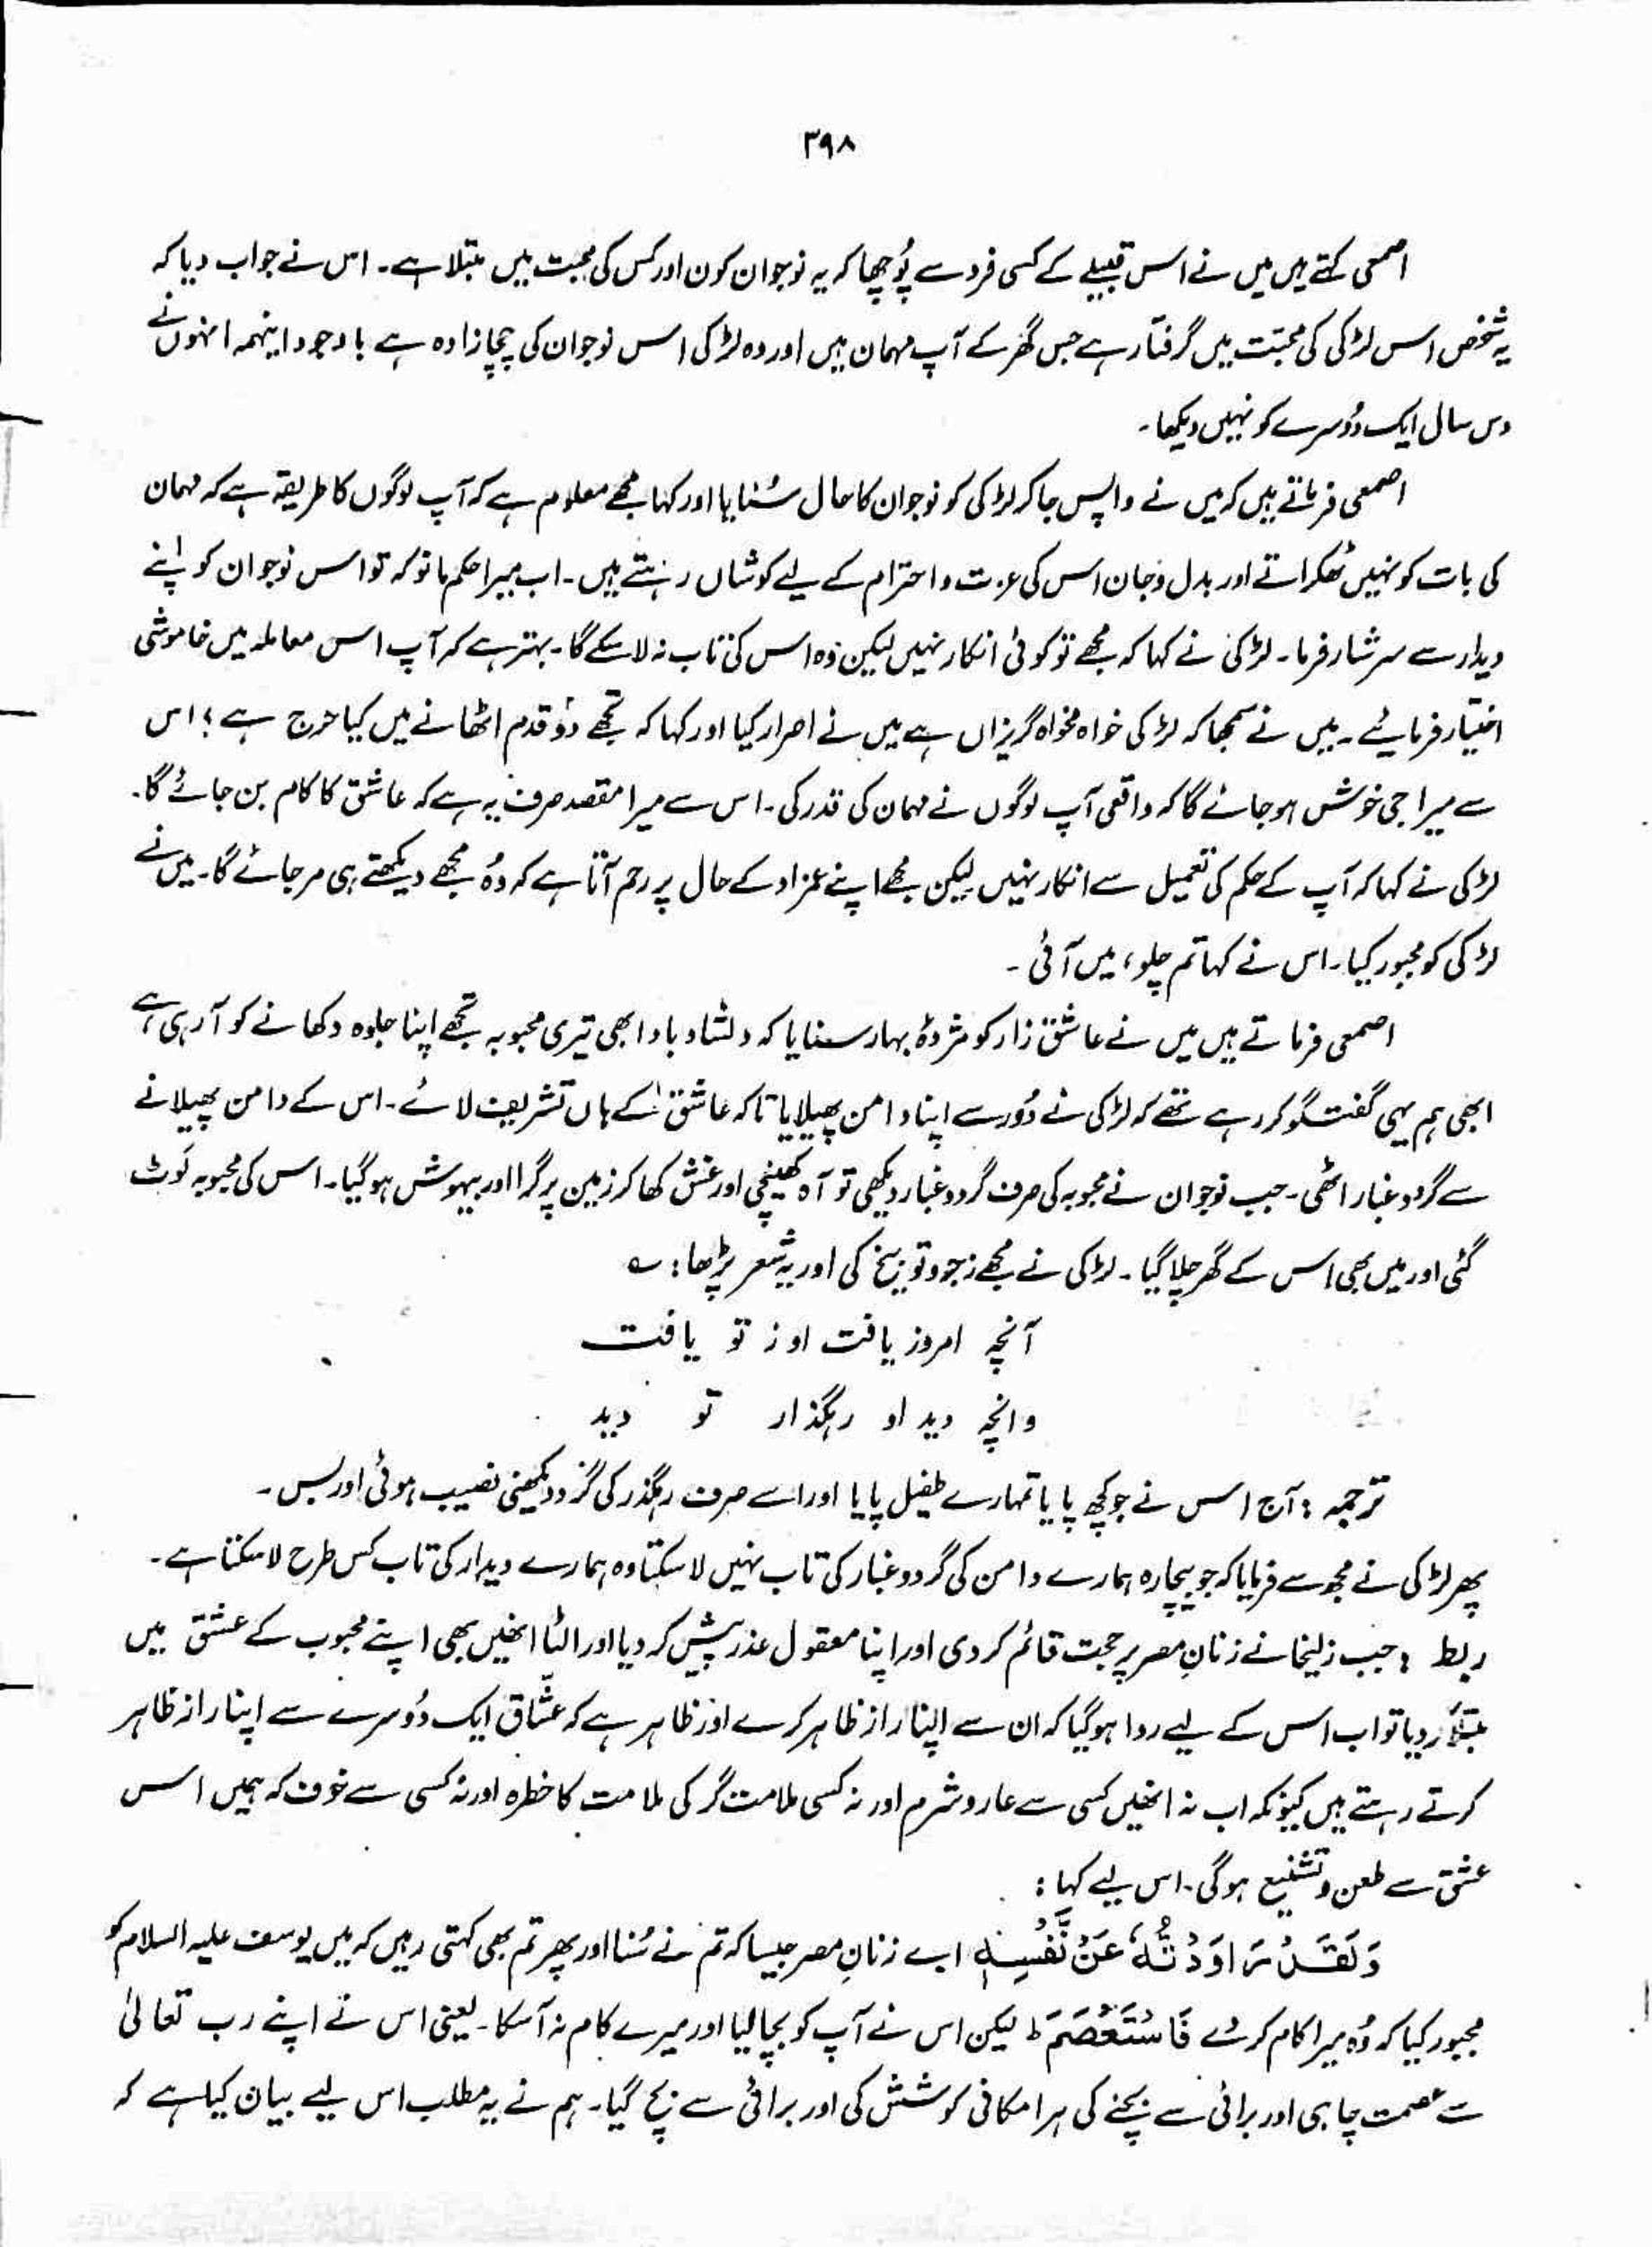 ۳۹۸
اصمعی کہتے ہیں میں نے اس قبیلے کے کسی فرد سے پُوچھا کہ یہ نوجوان کون اور کس کی محبت میں مبتلا ہے۔ اس نے جواب دیا کہ
یہ شخص اس لڑکی کی محبّت میں گرفتار ہے جس گھر کے آپ مہمان ہیں اور وہ لڑکی اس نوجوان کی چچازادہ ہے باوجود اینہمہ انہوں نے
دس سال ایک دُوسرے کو نہیں دیکھا۔
اصمعی فرماتے ہیں کہ میں نے واپس جا کر لڑکی کو نوجوان کا حال سُنایا اور کہا مجھے معلوم ہے کہ آپ لوگوں کا طریقہ ہے کہ مہمان
کی بات کو نہیں ٹھکراتے اور بدل وجان اس کی عزت و احترام کے لیے کوشاں رہتے ہیں۔ اب میرا حکم مانو کہ تو اس نوجوان کو اپنے
دیدار سے سرشار فرما۔ لڑکی نے کہا کہ مجھے تو کوئی انکار نہیں لیکن وُہ اس کی تاب نہ لاسکے گا۔ بہتر ہے کہ آپ اس معاملہ میں خاموشی
اختیار فرمائیے۔ میں نے سمجھا کہ لڑکی خواہ مخواہ گریزاں ہے میں نے اصرار کیا اور کہا کہ تجھے دو قدم اٹھانے میں کیا حرج ہے؟ اس
سے میرا جی خوش ہو جائے گا کہ واقعی آپ لوگوں نے مہمان کی قدر کی۔ اس سے میرا مقصد صرف یہ ہے کہ عاشق کا کام بن جائے گا۔
لڑکی نے کہا کہ آپ کے حکم کی تعمیل سے انکار نہیں لیکن مجھے اپنے عمزاد کے حال پر رحم آتا ہے کہ وُہ مجھے دیکھتے ہی مر جائے گا۔ میں نے
لڑکی کو مجبور کیا۔ اس نے کہا تم چلو، میں آئی۔
اصمعی فرماتے ہیں میں نے عاشق زار کو مژدۂ بہار سنایا کہ دلشاد باد ابھی تیری محبوبہ تجھے اپنا جلوہ دکھانے کو آرہی ہے
ابھی ہم یہی گفتگو کر رہے تھے کہ لڑکی نے دُور سے اپنا دامن پھیلایا تاکہ عاشق کے ہاں تشریف لائے۔ اس کے دامن پھیلانے
سے گرد وغبار اٹھی۔ جب نوجوان نے محبوبہ کی صرف گرد وغبار دیکھی تو آہ کھینچی اور غش کھا کر زمین پر گرا اور بیہوش ہوگیا۔ اس کی محبوبہ لَوٹ
گئی اور میں بھی اس کے گھر چلا گیا۔ لڑکی نے مجھے زجر و توبیخ کی اور یہ شعر پڑھا: ؎
آنچہ امروز یافت او ز تو یافت
وانچہ دید او رہگذار تو دید
ترجمہ: آج اس نے جو کچھ پایا تمہارے طفیل پایا اور اسے صرف رہگذر کی گرد دیکھنی نصیب ہوئی اور بس۔
پھر لڑکی نے مجھ سے فرمایا کہ جو بیچارہ ہمارے دامن کی گرد وغبار کی تاب نہیں لا سکتا وہ ہمارے دیدار کی تاب کس طرح لا سکتا ہے۔
ربط: جب زلیخا نے زنانِ مصر پر حجت قائم کر دی اور اپنا معقول عذر پیش کر دیا اور الٹا انھیں بھی اپنے محبوب کے عشق میں
مبتلا کر دیا تو اب اس کے لیے روا ہوگیا کہ ان سے اپنا راز ظاہر کرے اور ظاہر ہے کہ عشّاق ایک دُوسرے سے اپنا راز ظاہر
کرتے رہتے ہیں کیونکہ اب نہ انھیں کسی سے عار و شرم اور نہ کسی ملامت گر کی ملامت کا خطرہ اور نہ کسی سے خوف کہ ہمیں اس
عشق سے طعن و تشنیع ہوگی۔ اس لیے کہا:
وَلَقَدْ رَاوَدْتُّہٗ عَنْ نَّفْسِہٖ اے زنانِ مصر جیسا کہ تم نے سُنا اور پھر تم بھی کہتی رہیں کہ میں یوسف علیہ السلام کو
مجبور کیا کہ وُہ میرا کام کر دے فَاسْتَعْصَمَ ط لیکن اس نے آپ کو بچا لیا اور میرے کام نہ آسکا۔ یعنی اس نے اپنے رب تعالیٰ
سے عصمت چاہی اور برائی سے بچنے کی ہر امکانی کوشش کی اور برائی سے بچ گیا۔ ہم نے یہ مطلب اس لیے بیان کیا ہے کہ